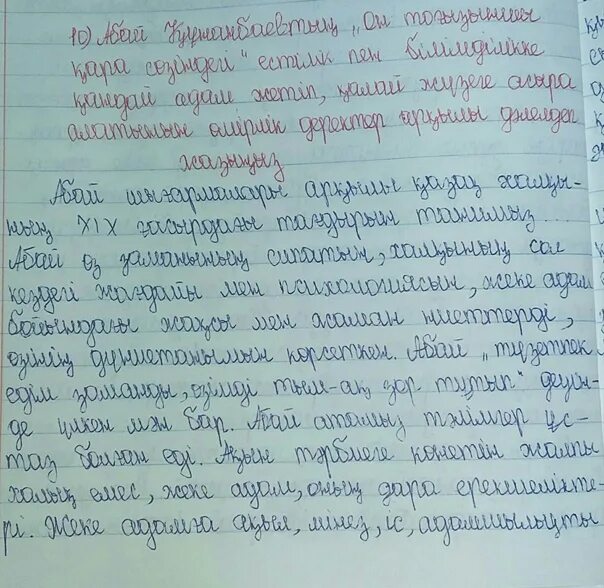 10) Абай Құнанбаевтың „Он тоғызыншы
қара сөзіндегі" естілік пен білімділікке
қандай адам жетіп, қалай жүзеге асыра
алатынын өмірлік деректер арқылы дәлелдеп
жазыңыз
Абай шығармалары арқылы қазақ халқы-
ның XIX ғасырдағы тағдырын танимыз....
Абай өз заманының сипатын, халқының сол
кездегі жағдайы мен психологиясын, жеке адам
бойындағы жақсы мен жаман ниеттерді,
өзінің дүниетанымын көрсеткен. Абай „түзетпек
едім заманды, өзімді тым-ақ зор тұтып" деуін-
де үлкен мән бар. Абай атамыз тәлімгер ұс-
таз болған еді. Ақын тәрбиеге көнетін жалпы
халық емес, жеке адам, оның дара ерекшелікте-
рі. Жеке адамға ақыл, мінез, іс, адамшылықты